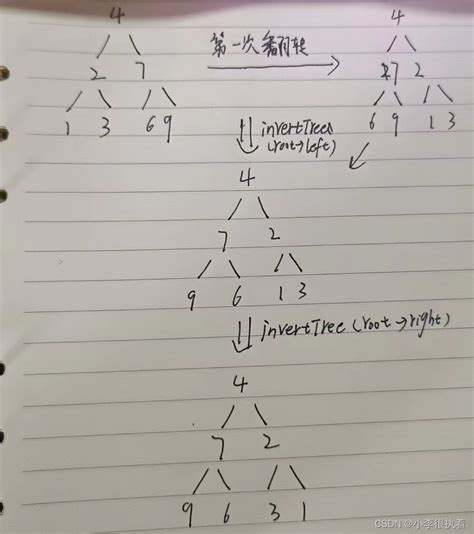 4
第一次翻转
4
2 7
7 2
1 3 6 9
6 9 1 3
invertTrees
(root→left)
4
7 2
9 6 1 3
invertTree (root→right)
4
7 2
9 6 3 1
CSDN @小李很执着